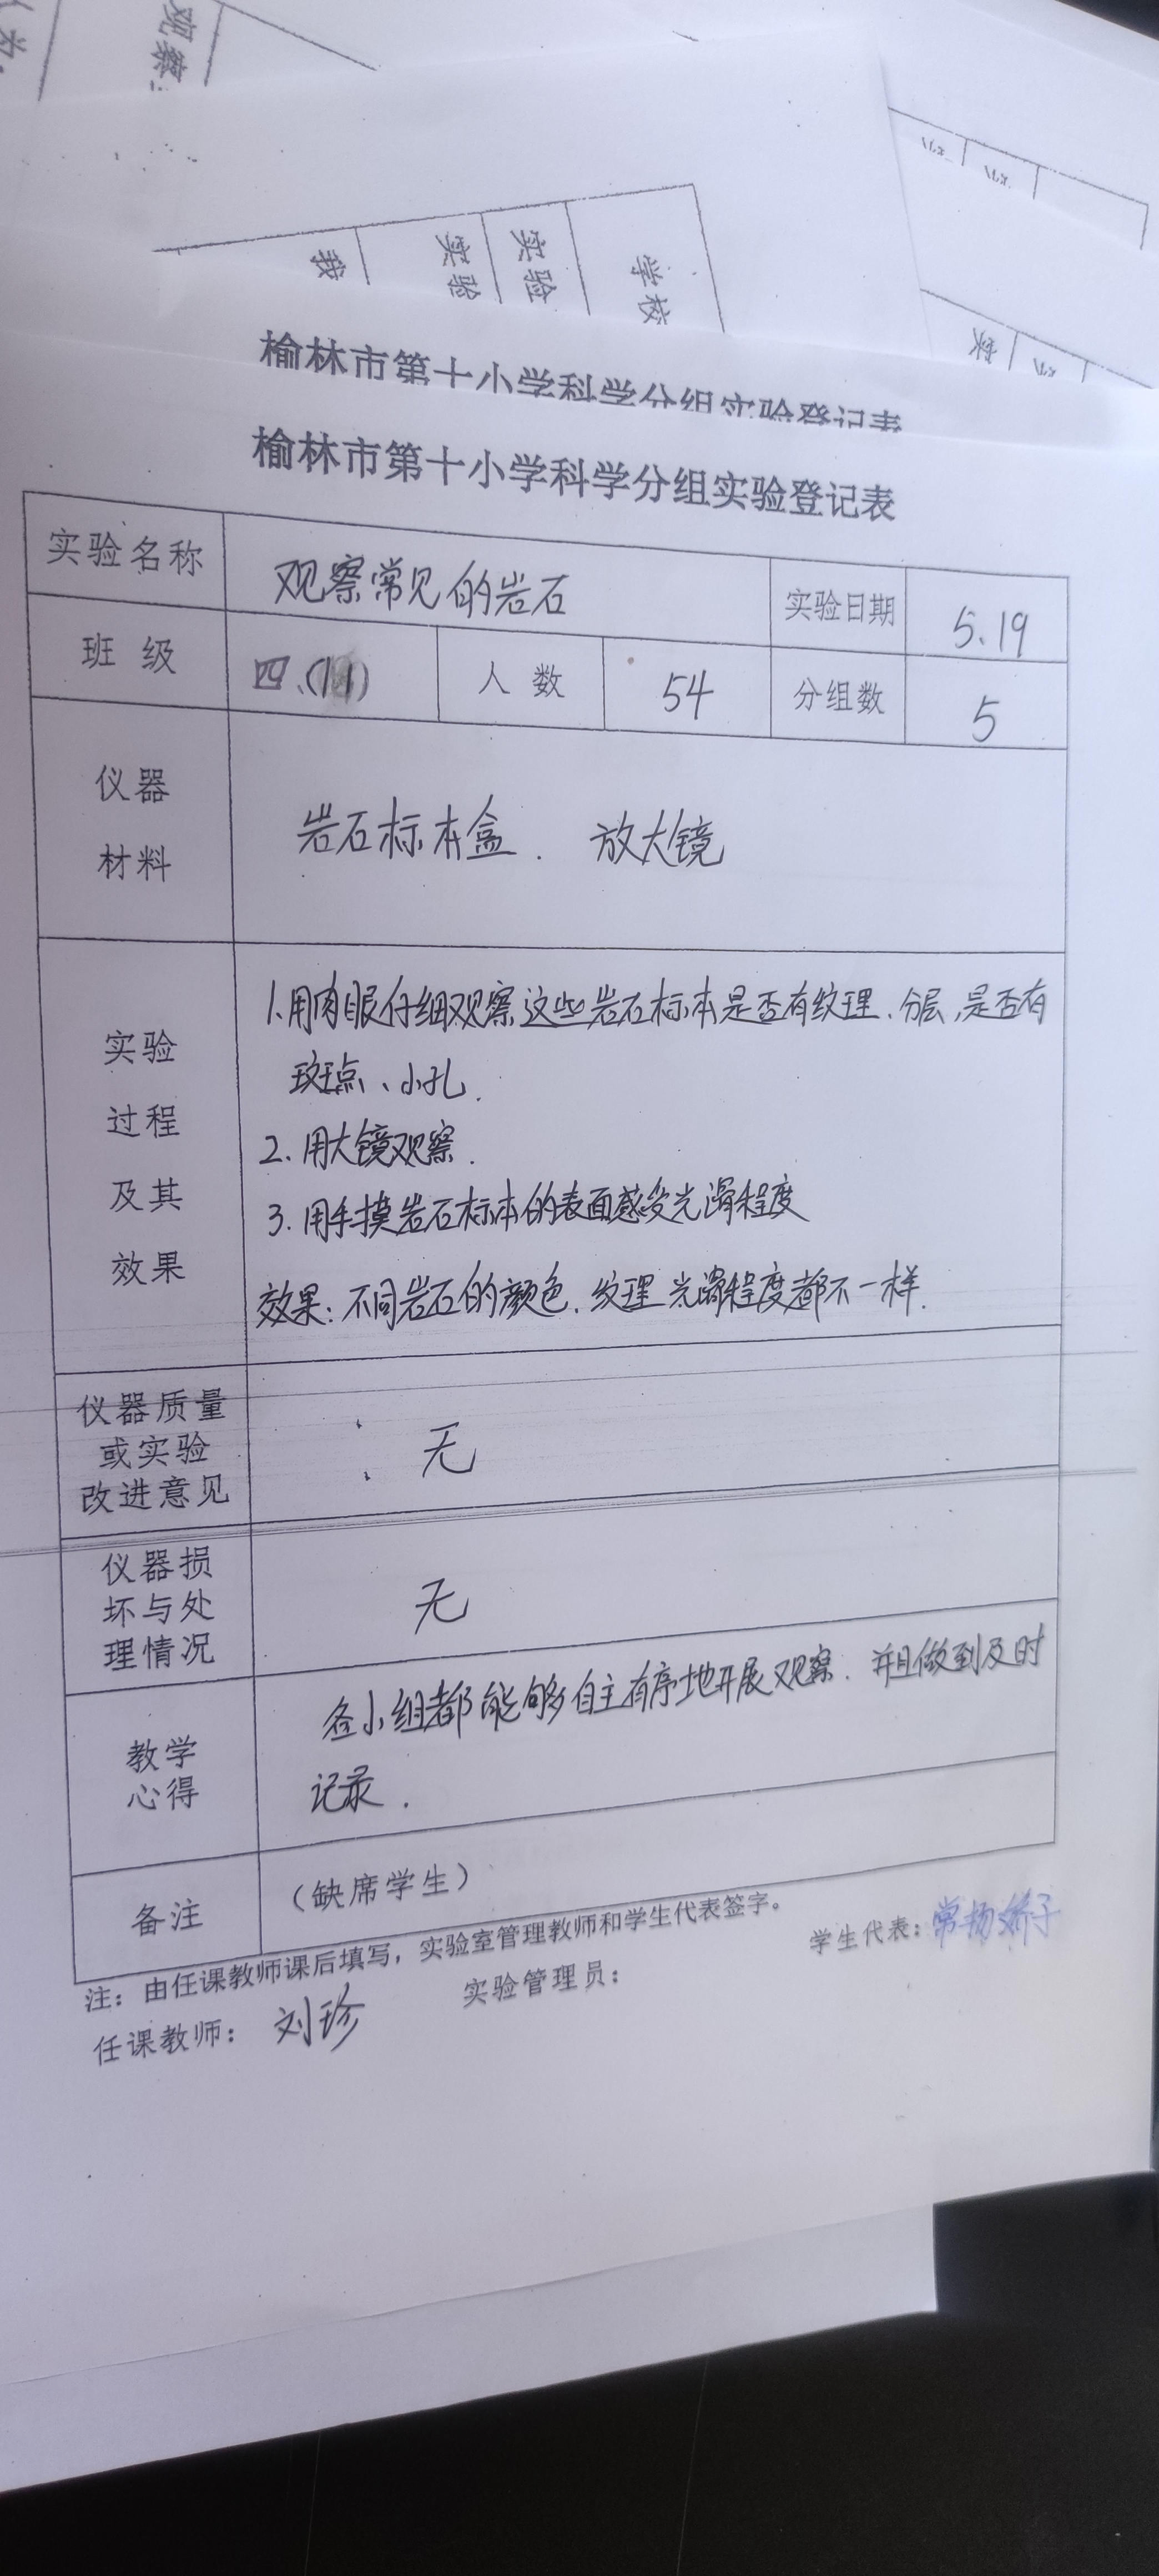 观察
学校
实验
实验
我
榆林市第十小学科学分组实验登记表
榆林市第十小学科学分组实验登记表
实验名称 观察常见的岩石 实验日期 5.19
班 级 四.(11) 人 数 54 分组数 5
仪器
材料
岩石标本盒. 放大镜
实验
过程
及其
效果
1.用肉眼仔细观察这些岩石标本是否有纹理、分层,是否有
斑点、小孔.
2.用大镜观察.
3.用手摸岩石标本的表面感受光滑程度
效果:不同岩石的颜色.纹理 光滑程度都不一样.
仪器质量
或实验
改进意见
无
仪器损
坏与处
理情况
无
教学
心得
各小组都能够自主有序地开展观察.并且做到及时
记录.
备注 (缺席学生)
注:由任课教师课后填写,实验室管理教师和学生代表签字。
任课教师: 刘珍 实验管理员: 学生代表:常杨娇子